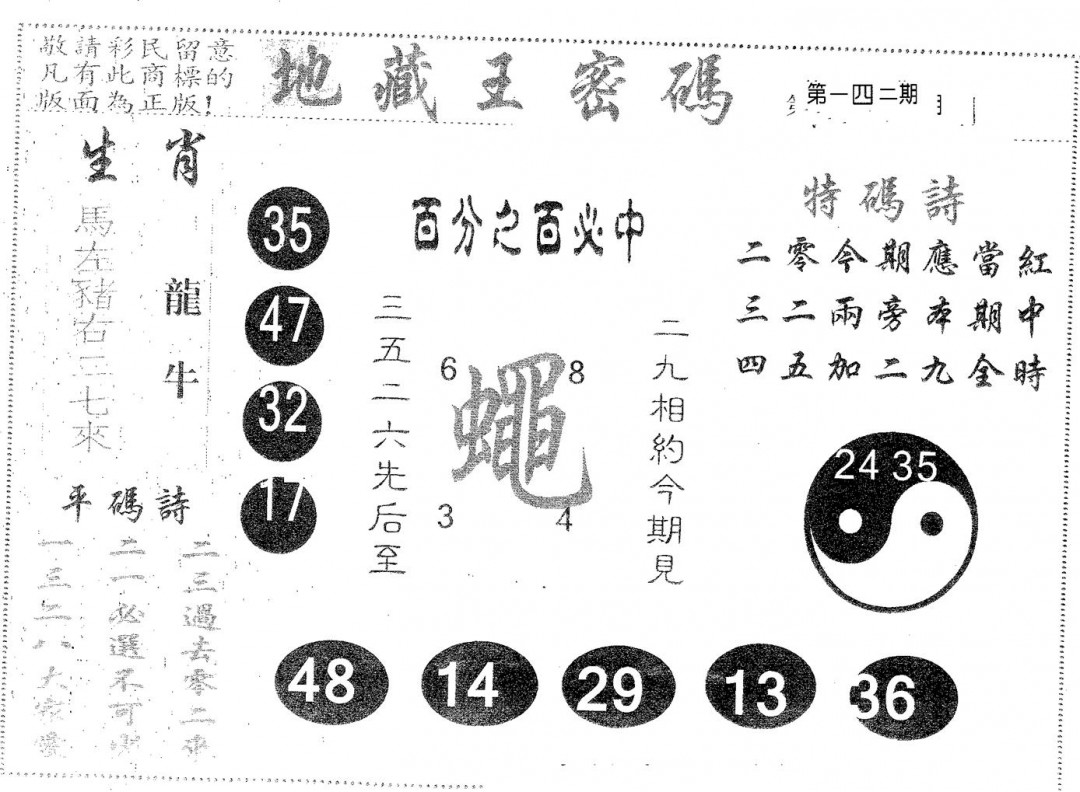 敬請彩民留意
凡有此商標的
版面為正版!
地藏王密碼
第一四二期
生肖
馬左豬右三七來
龍牛
35
47
32
17
百分之百必中
三五二六先后至
6
8
蠅
3
4
二九相約今期見
特碼詩
二零今期應當紅
三二兩旁本期中
四五加二九全時
24 35
平碼詩
二三過去零二來
二一必選不可
一三二八大家愛
48
14
29
13
36